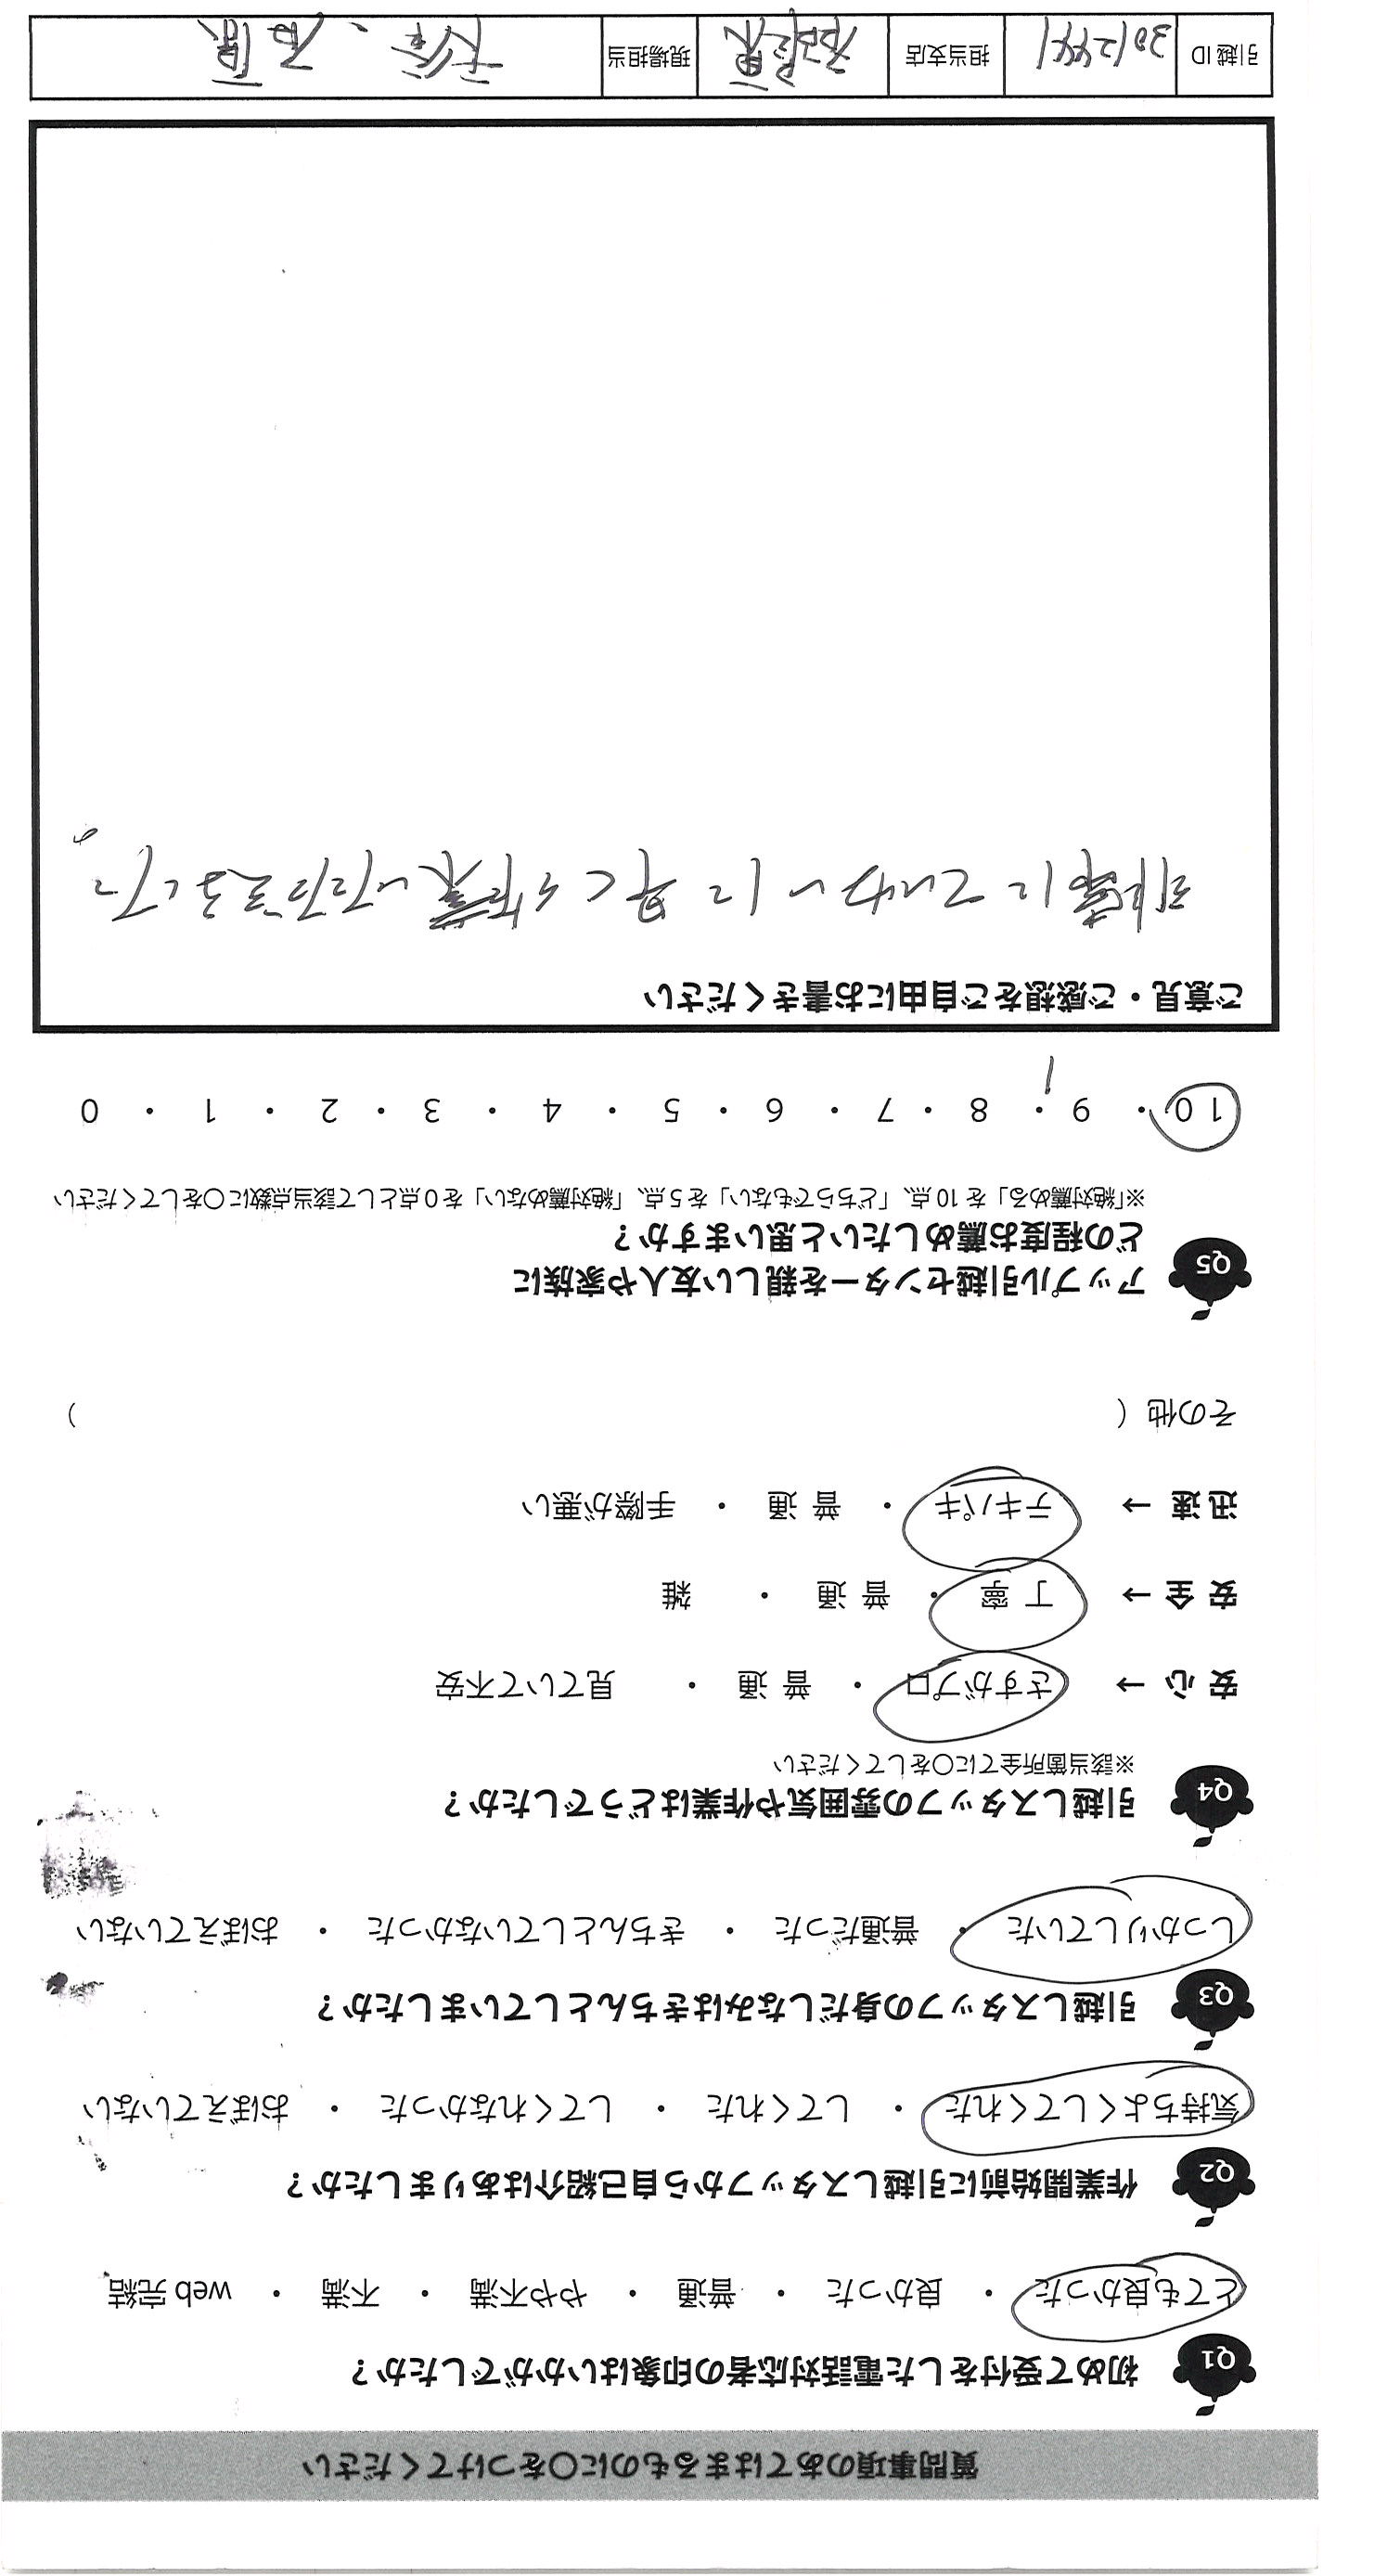 質問事項のあてはまるものに〇をつけてください
Q1 初めて受付をした電話対応者の印象はいかがでしたか？
とても良かった ・ 良かった ・ 普通 ・ やや不満 ・ 不満 ・ web 完結
Q2 作業開始前に引越しスタッフから自己紹介はありましたか？
気持ちよくしてくれた ・ してくれた ・ してくれなかった ・ おぼえていない
Q3 引越しスタッフの身だしなみはきちんとしていましたか？
しっかりしていた ・ 普通だった ・ きちんとしていなかった ・ おぼえていない
Q4 引越しスタッフの雰囲気や作業はどうでしたか？
※該当箇所全てに〇をしてください
安 心 → さすがプロ ・ 普 通 ・ 見ていて不安
安 全 → 丁 寧 ・ 普 通 ・ 雑
迅 速 → テキパキ ・ 普 通 ・ 手際が悪い
その他（ ）
Q5 アップル引越センターを親しい友人や家族に
どの程度お薦めしたいと思いますか？
※「絶対薦める」を 10 点、「どちらでもない」を 5 点、「絶対薦めない」を 0 点として該当点数に〇をしてください
10 ・ 9 ・ 8 ・ 7 ・ 6 ・ 5 ・ 4 ・ 3 ・ 2 ・ 1 ・ 0
ご意見・ご感想をご自由にお書きください
非常にていねいに早く作業いただきまして
引越 ID 3012441 担当支店 現場担当